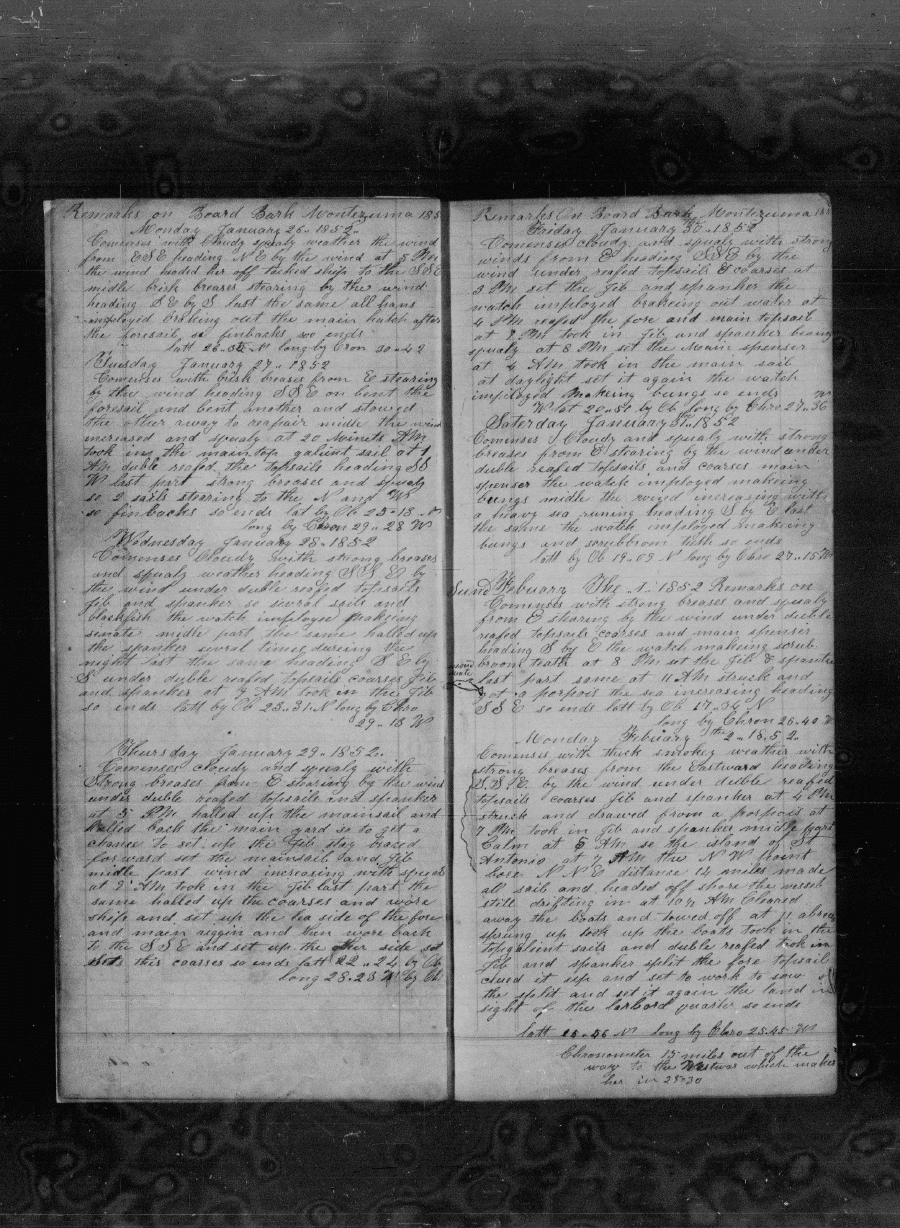 Remarks on Board Bark Montezuma 185
Monday January 26. 1852.
Comenses with Cloudy squaly weather the wind
from ESE heading N E by the wind at 5 PM
the wind heded her off tacked ship to the SSE
midle brisk breases stearing by the wind
heading S E by S last the same all hans
employed braking out the main hatch after
the foresail se finbacks so ends
latt 26-35 N long by Cron 30-42
Tuesday January 27. 1852
Comenses with brisk breases from E stearing
by the wind heading SSE on bent the
foresail and bent another and stowed
the other away to reapair midle the wind
increased and squaly at 20 Minets AM
took in the main top galient sail at 1
AM duble reafed the topsails heading SS
W last part strong breases and squaly
so 2 sails stearing to the N and W
so finbacks so ends lat by Ob 25-13 N
long by Chron 29-28 W
Wednesday January 28. 1852
Comenses Cloudy with strong breases
and squaly weather heading SSE by
the wind under duble reafed topsails
Jib and spanker so sevral sails and
blackfish the watch imployed makeing
senate midle part the same halled up
the spanker sevral times dureing the
night last the same heading S E by
S under duble reafed topsails coarses Jib
and spanker at 7 AM took in the Jib
so ends latt by Ob 23-31 N long by Chro
29-18 W
Thursday January 29. 1852.
Comenses cloudy and squaly with
Strong breases from E sharing by the wind
under duble reafed topsails and spanker
at 5 PM halled up the mainsail and
halled back the main yard so to get a
chance to set up the Jib stay braced
forward set the mainsail and Jib
midle part wind increasing with squals
at 2 AM took in the Jib last part the
same halled up the coarses and wore
ship and set up the lea side of the fore
and main riggin and then wore back
to the SSE and set up the other side set
this coarses so ends latt 22-24 by Ob
long 28-28 W by Ch
Remarks On Board Bark Montezuma 185
Friday January 30th 1852
Comenses cloudy and squaly with strong
winds from E heading SSE by the
wind under reafed topsails & coarses at
2 PM set the Jib and spanker the
watch imployed brakeing out water at
4 PM reafed the fore and main topsail
at 7 PM took in Jib and spanker heavy
squaly at 8 PM set the Main spenser
at 4 AM took in the main sail
at daylight set it again the watch
imployed Makeing bungs so ends
N lat 20-50 by Ob long by Chro 27-36 W
Saterday January 31st 1852
Comenses Cloudy and squaly with strong
breases from E stearing by the wind under
duble reafed topsails and coarses main
spenser the watch imployed makeing
bungs midle the wind increasing with
a heavy sea runing heading S by E last
the same the watch imployed makeing
bungs and scrubbroom teeth so ends
latt by Ob 19-09 N long by Chro 27-15 W
Sund Febuary The 1. 1852 Remarks on
Comenses with strong breases and squaly
from E sharing by the wind under duble
reafed topsails coarses and main spenser
heading S by E the watch making scrub-
broom teath at 8 PM set the Jib & spanker
last part same at 11 AM struck and
got a porpois the sea increasing heading
SSE so ends latt by Ob 17-34 N
long by Chron 26-40 W
Monday Febuary the 2. 1852.
Comenses with thick smokey weather with
strong breases from the Eastward heading
S.S.E. by the wind under duble reafed
topsails coarses Jib and spanker at 4 PM
struck and drawed from a porpois at
7 PM took in Jib and spanker midle part
Calm at 5 AM se the island of St
Antonio at 7 AM the N W point
bore N N E distance 14 miles made
all sail and headed off shore the vessel
still drifting in at 10½ AM Cleared
away the boats and towed off at 11 a breas
sprung up took up the boats took in the
topgalient sails and duble reafed took in
Jib and spanker split the fore topsail
clued it up and set to work to sow
the split and set it again the land in
sight of the larbord quarter so ends
latt 15-56 N long by Chro 25-45 W
Chronometer 15 miles out of the
way to the Westwar which makes
her in 25-30